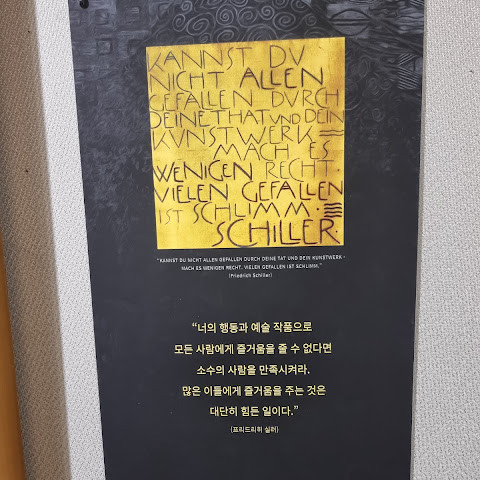 KANNST DU
NICHT ALLEN
GEFALLEN DURCH
DEINE THAT UND DEIN
KUNSTWERK
MACH ES
WENIGEN RECHT.
VIELEN GEFALLEN
IST SCHLIMM.
SCHILLER.
"KANNST DU NICHT ALLEN GEFALLEN DURCH DEINE TAT UND DEIN KUNSTWERK -
MACH ES WENIGEN RECHT, VIELEN GEFALLEN IST SCHLIMM."
(Friedrich Schiller)
“너의 행동과 예술 작품으로
모든 사람에게 즐거움을 줄 수 없다면
소수의 사람을 만족시켜라.
많은 이들에게 즐거움을 주는 것은
대단히 힘든 일이다.”
(프리드리히 실러)